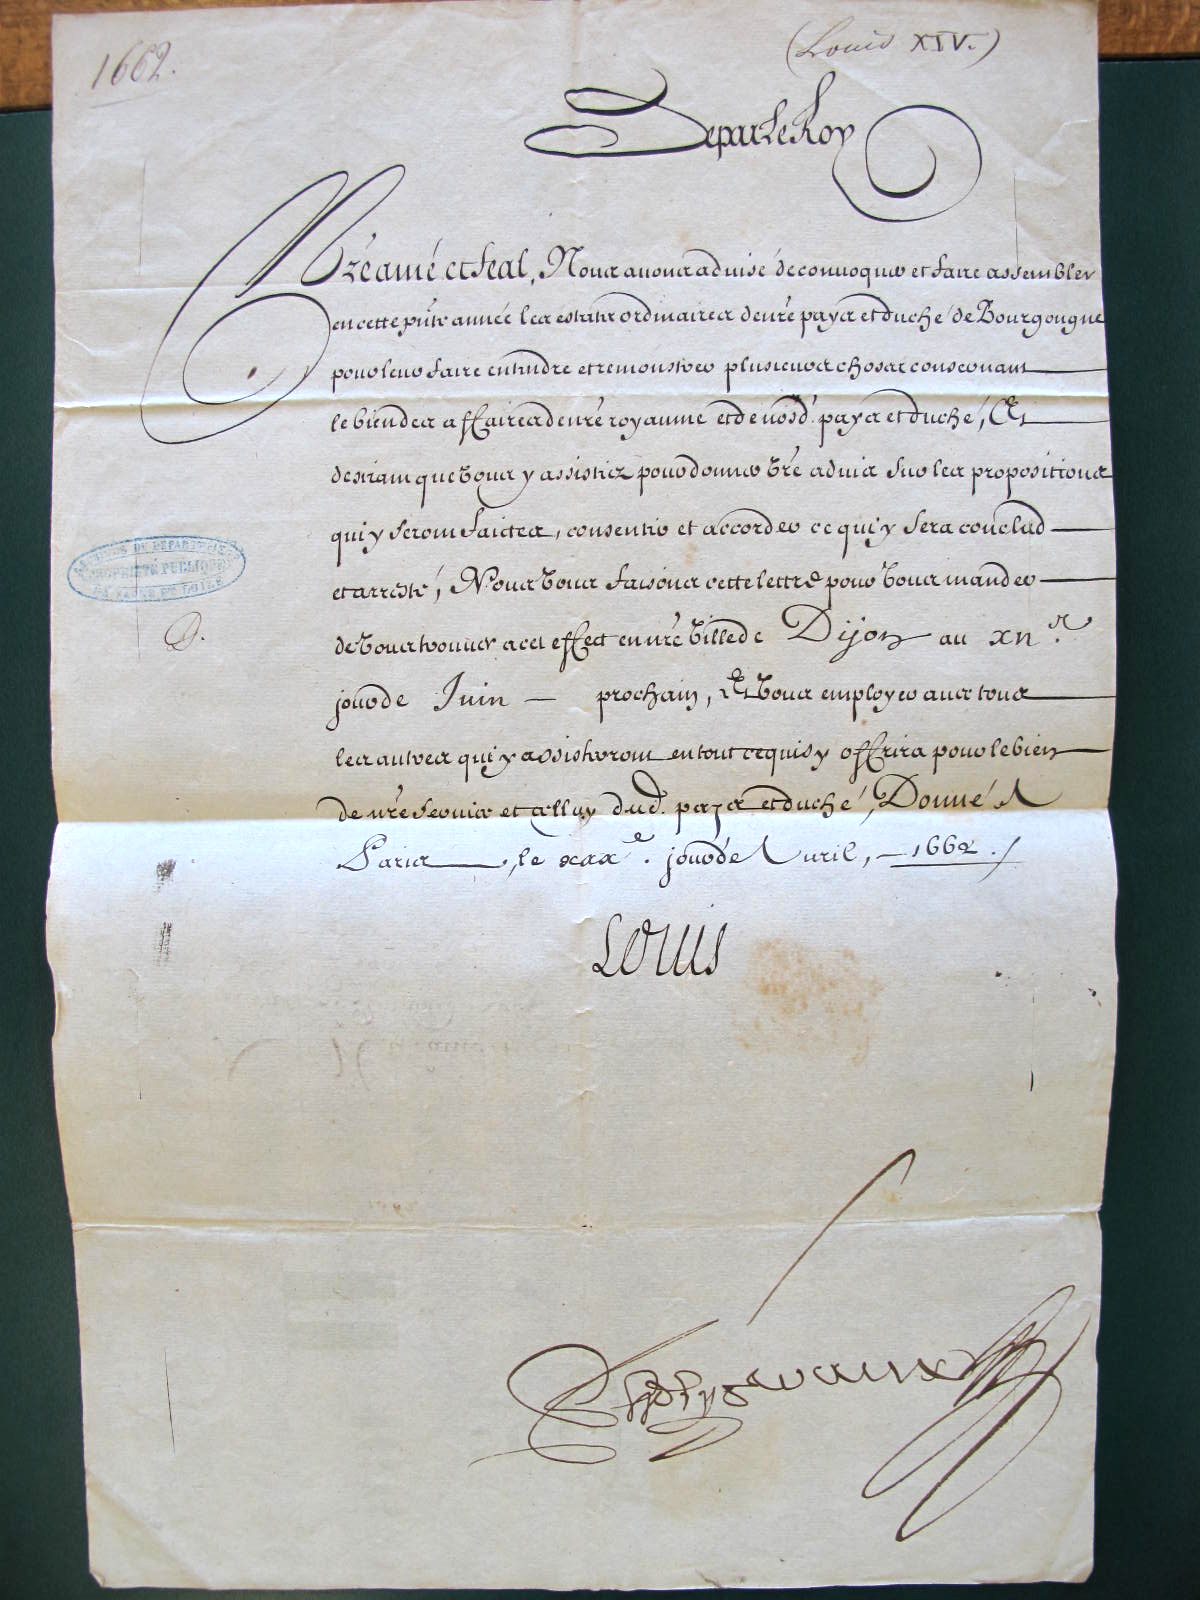 1662.
(Louis XIV.)
De par Le Roy
Nr̃e amé et feal, Nous auons aduisé de conuoquer et faire assembler
en cette pñte année les estats ordinaires de nr̃e pays et duché de Bourgougne
pour leur faire entendre et remonstrer plusieurs choses concernant
le bien des affaires de nr̃e royaume et de nosd. pays et duché, Et
desirant que vous y assistiez pour donner vr̃e aduis sur les propositions
qui y seront faictes, consentir et accorder ce qui y sera conclud
et arresté, Nous vous faisons cette lettre pour vous mander
de vous trouuer a cet effect en nr̃e ville de Dijon au
jour de Juin prochain, Et vous employer auec tous
les autres qui y assisteront en tout ce qui s'y offrira pour le bien
de nr̃e seruice et celluy dud. pays et duché, Donné A
Paris, le xxxe. jour de Auril, 1662.
Louis
ARCHIVES DU DEPARTEMENT
PROPRIÉTÉ PUBLIQUE
DE SAONE ET LOIRE
Phelypeaux